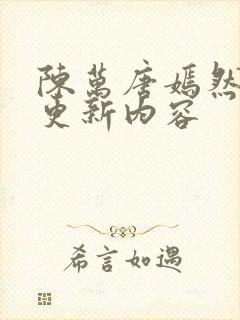 陳萬唐嫣然
更新內容
希言如遇